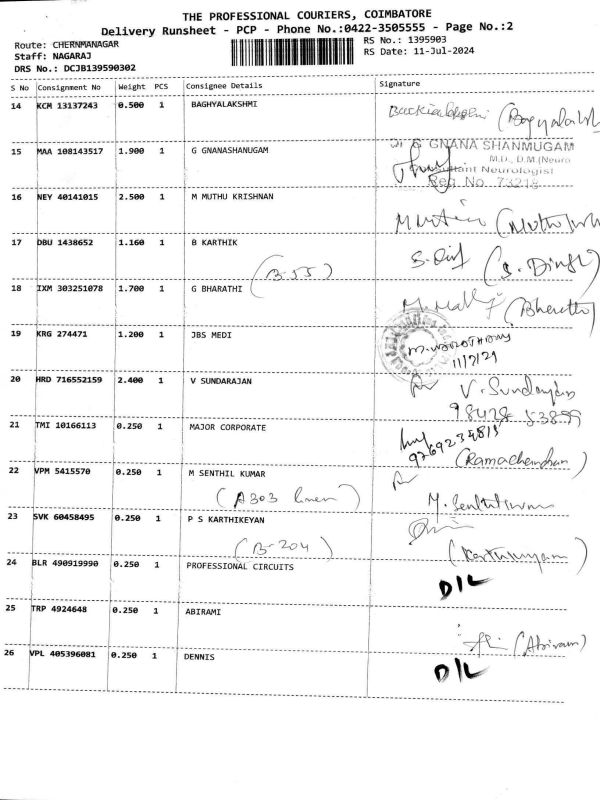 THE PROFESSIONAL COURIERS, COIMBATORE
Delivery Runsheet - PCP - Phone No.:0422-3505555 - Page No.:2
Route: CHERNMANAGAR
RS No.: 1395903
Staff: NAGARAJ
RS Date: 11-Jul-2024
DRS No.: DCJB139590302
S No Consignment No Weight PCS Consignee Details Signature
14 KCM 13137243 0.500 1 BAGHYALAKSHMI
15 MAA 108143517 1.900 1 G GNANASHANUGAM
GNANA SHANMUGAM
M.D., D.M.(Neuro
Neurologist
Reg. No. 73218
16 NEY 40141015 2.500 1 M MUTHU KRISHNAN
17 DBU 1438652 1.160 1 B KARTHIK
(B-55)
18 IXM 303251078 1.700 1 G BHARATHI
19 KRG 274471 1.200 1 JBS MEDI
20 HRD 716552159 2.400 1 V SUNDARAJAN
21 TMI 10166113 0.250 1 MAJOR CORPORATE
(Ramachandran)
22 VPM 5415570 0.250 1 M SENTHIL KUMAR
(A303
23 SVK 60458495 0.250 1 P S KARTHIKEYAN
(B-204)
24 BLR 490919990 0.250 1 PROFESSIONAL CIRCUITS D/L
25 TRP 4924648 0.250 1 ABIRAMI
(Abiram)
26 VPL 405396081 0.250 1 DENNIS D/L